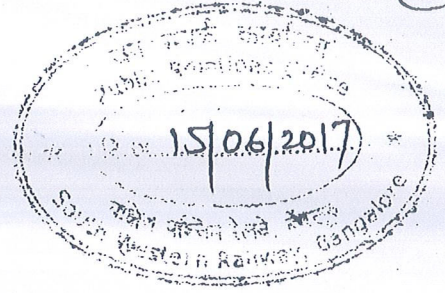 जन संपर्क कार्यालय
Public Relations Office
15/06/2017
South Western Railway, Bangalore